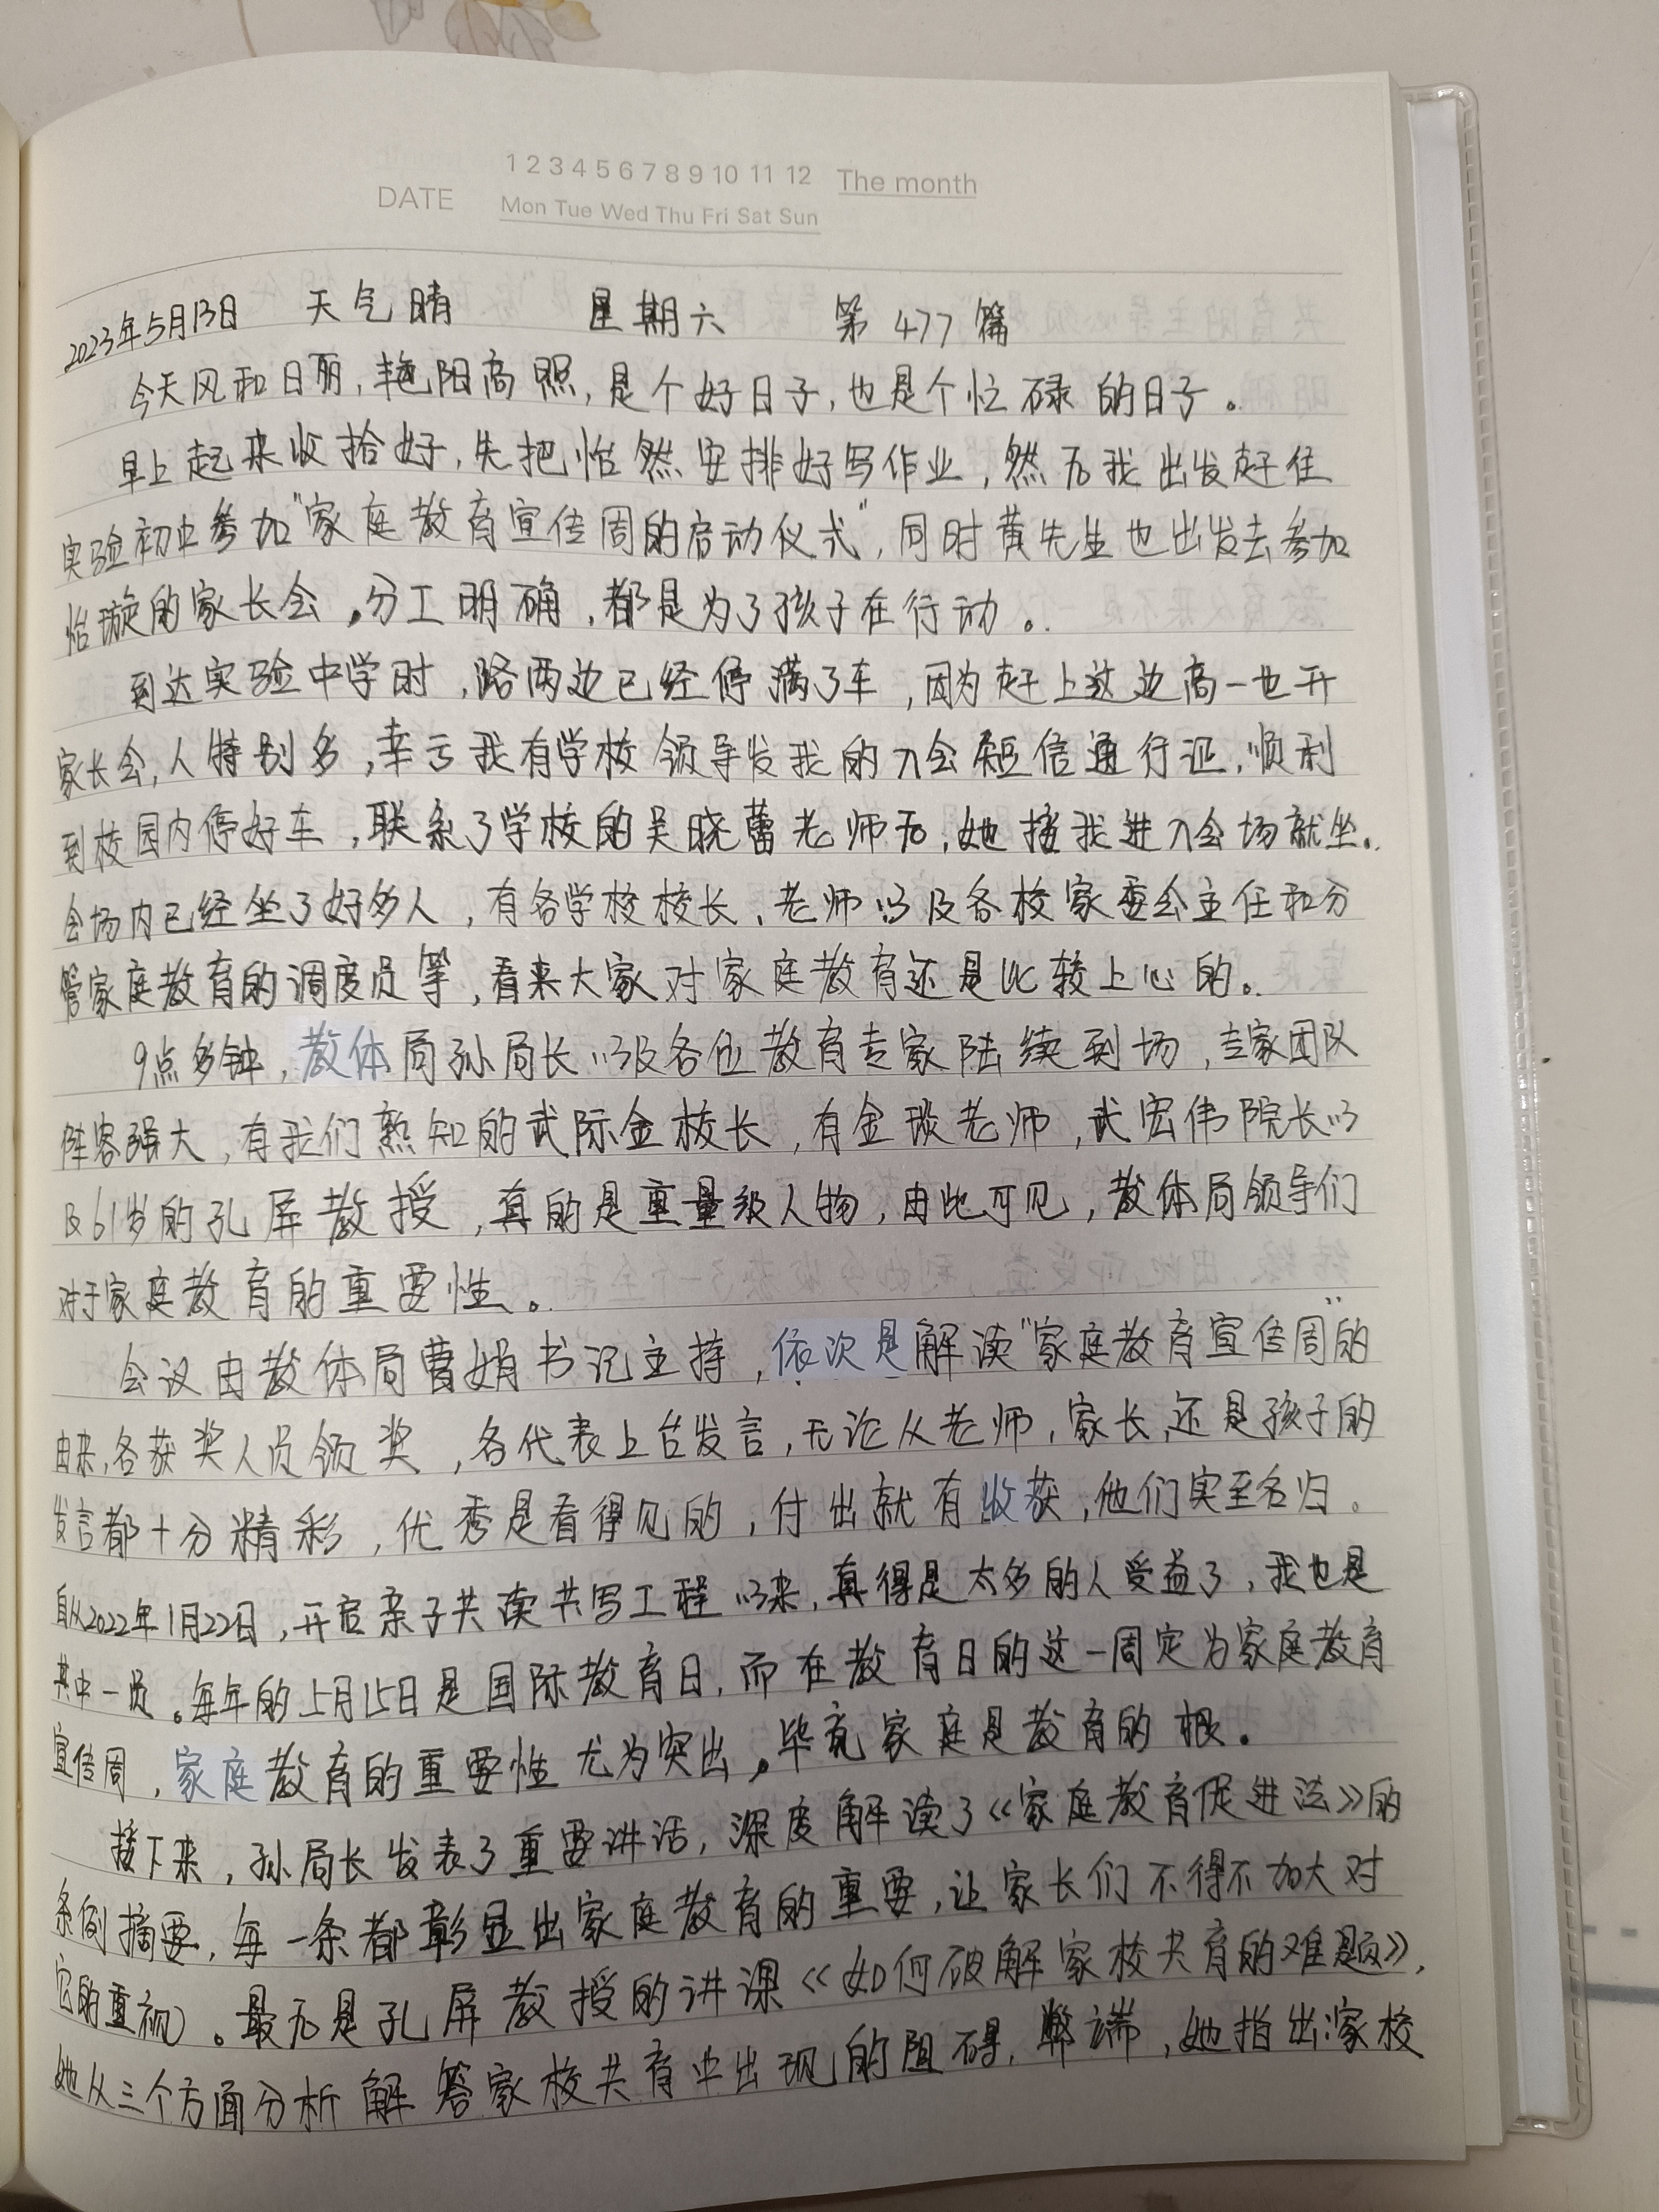 1 2 3 4 5 6 7 8 9 10 11 12 The month
DATE
Mon Tue Wed Thu Fri Sat Sun
2023年5月13日 天气晴 星期六 第477篇
今天风和日丽,艳阳高照,是个好日子,也是个忙碌的日子。
早上起来收拾好,先把怡然安排好写作业,然后我出发赶往
实验初中参加"家庭教育宣传周的启动仪式",同时黄先生也出发去参加
怡璇的家长会。分工明确,都是为了孩子在行动。
到达实验中学时,路两边已经停满了车,因为赶上这边高一也开
家长会,人特别多,幸亏我有学校领导发我的入会短信通行证,顺利
到校园内停好车,联系了学校的吴晓蕾老师后,她接我进入会场就坐。
会场内已经坐了好多人,有各学校校长、老师以及各校家委会主任和分
管家庭教育的调度员等,看来大家对家庭教育还是比较上心的。
9点多钟,教体局孙局长以及各位教育专家陆续到场,专家团队
阵容强大,有我们熟知的武际金校长,有金琰老师,武宏伟院长以
及61岁的孔屏教授,真的是重量级人物,由此可见,教体局领导们
对于家庭教育的重要性。
会议由教体局曹娟书记主持,依次是解读"家庭教育宣传周"的
由来,各获奖人员领奖,各代表上台发言,无论从老师,家长,还是孩子的
发言都十分精彩,优秀是看得见的,付出就有收获,他们实至名归。
自从2022年1月22日,开启亲子共读共写工程以来,真得是太多的人受益了,我也是
其中一员。每年的5月15日是国际教育日,而在教育日的这一周定为家庭教育
宣传周,家庭教育的重要性尤为突出。毕竟家庭是教育的根。
接下来,孙局长发表了重要讲话,深度解读了《家庭教育促进法》的
条例摘要,每一条都彰显出家庭教育的重要,让家长们不得不加大对
它的重视。最后是孔屏教授的讲课《如何破解家校共育的难题》,
她从三个方面分析解答家校共育中出现的阻碍,弊端,她指出家校